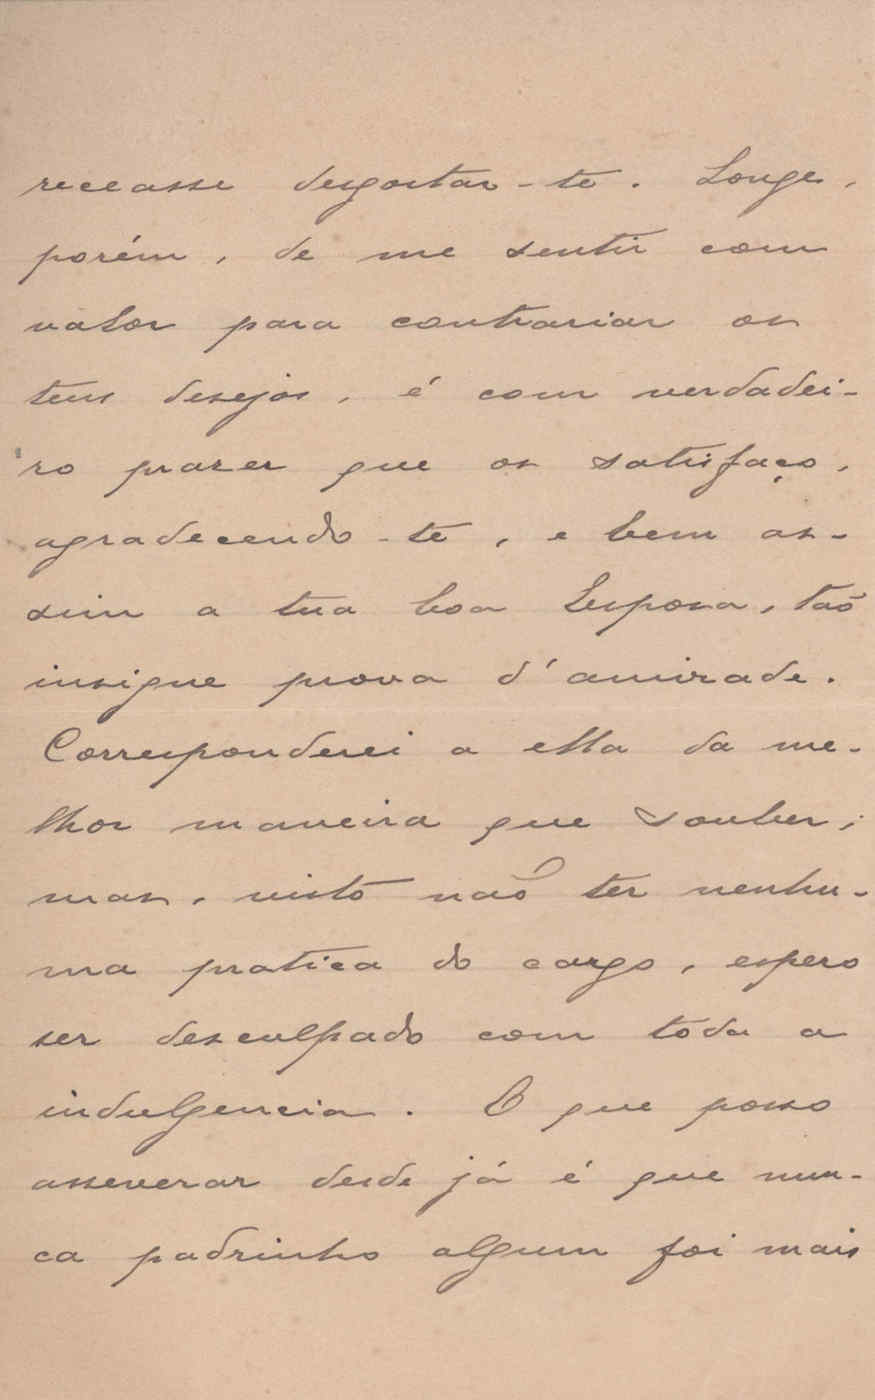 receasse desgostar-te. Longe,
porém, de me sentir com
valor para contrariar os
teus desejos, é com verdadei-
ro prazer que os satisfaço,
agradecendo-te, e bem as-
sim a tua boa Esposa, tão
insigne prova d'amizade.
Corresponderei a ella da me-
lhor maneira que souber;
mas, visto não ter nenhu-
ma pratica do cargo, espero
ser desculpado com toda a
indulgencia. O que posso
asseverar desde já é que nun-
ca padrinho algum foi mais